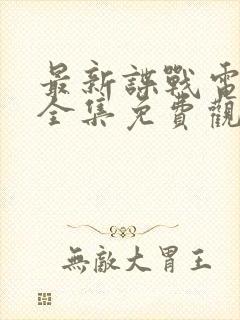 最新諜戰電
全集免費觀
無敵大胃王